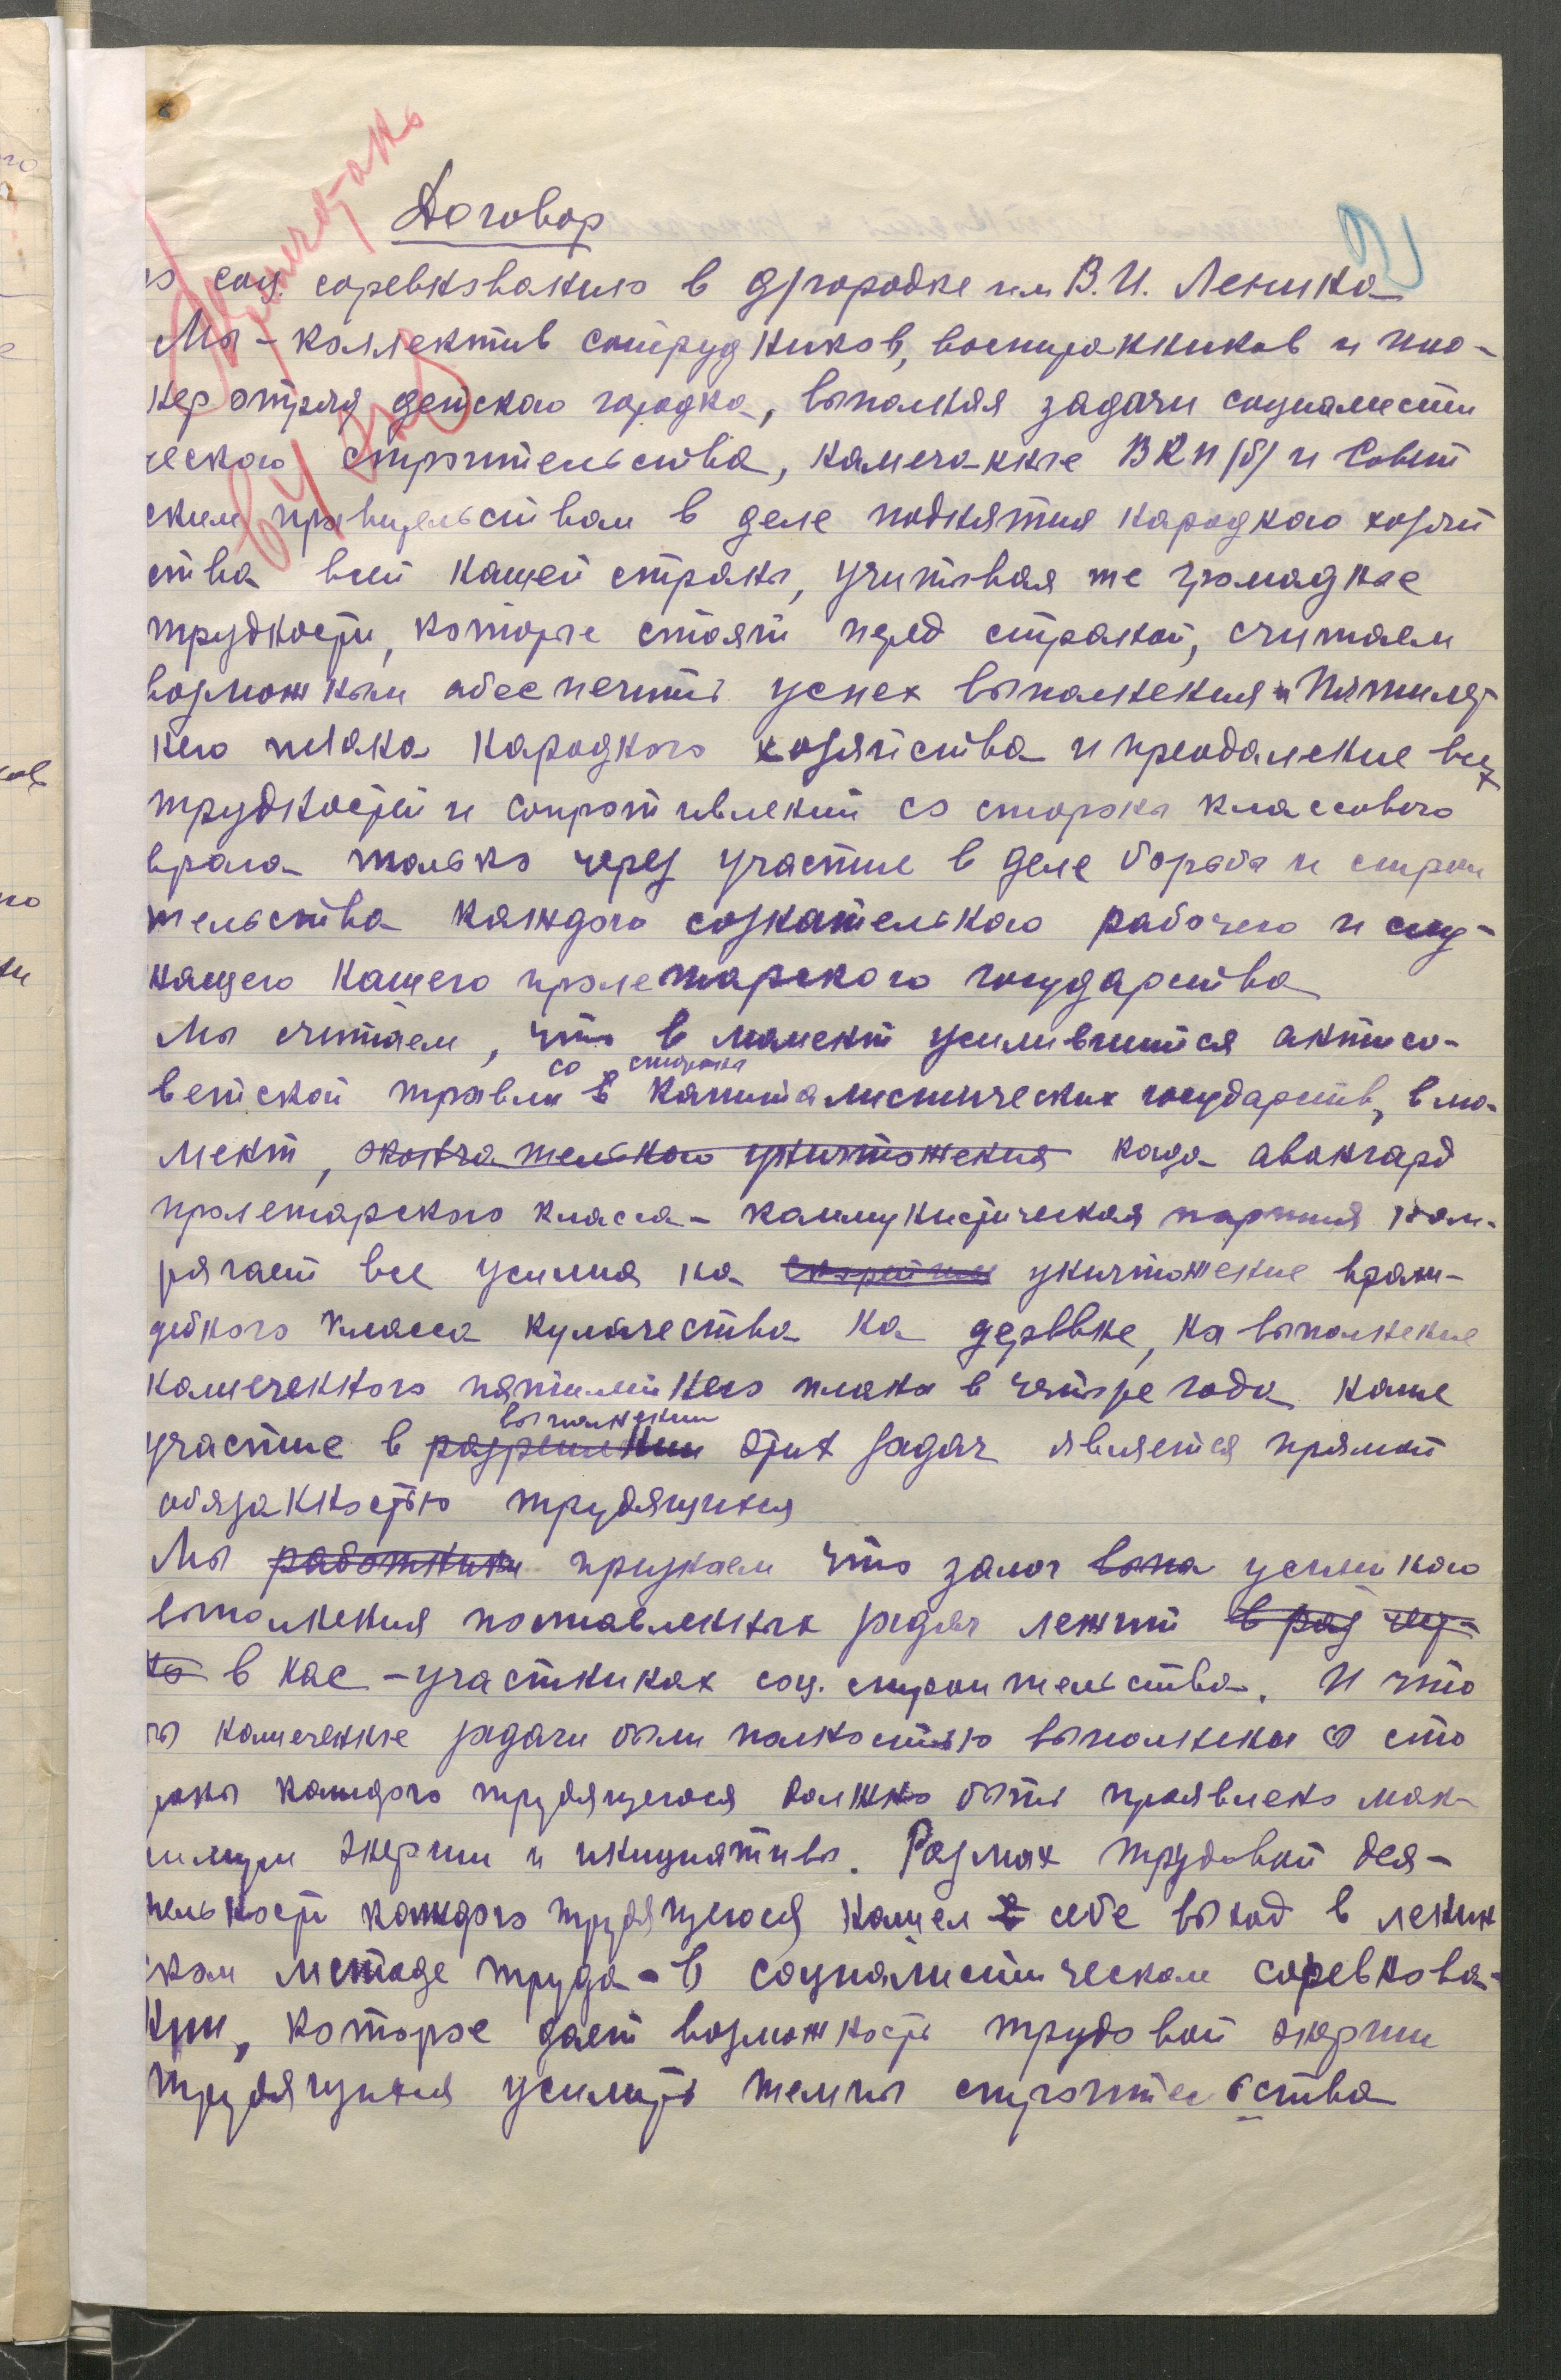 Договор
о соц. соревнованию в д/городке им В. И. Ленина
Мы - коллектив сотрудников, воспитанников и пио-
нер отряд детского городка, выполняя задачи социалисти
ческого строительства, намеченные ВКП/б/ и Совет
ским правительством в деле поднятия народного хозяй
ства всей нашей страны, учитывая те громадные
трудности, которые стоят перед страной, считаем
возможным обеспечить успех выполнения Пятилет
него плана народного хозяйства и преодоление всех
трудностей и сопротивлений со стороны классового
врага только через участие в деле борьбы и строи
тельства каждого сознательного рабочего и слу-
жащего нашего пролетарского государства
Мы считаем, что в момент усилившейся антисо-
ветской травли со стороны капиталистических государств, в мо-
мент, окончательного уничтожения когда авангард
пролетарского класса - коммунистическая партия нап-
рягает все усилия на уничтожение враж-
дебного класса кулачества на деревне, на выполнение
намеченного пятилетнего плана в четыре года наше
участие в разрешении выполнении этих задач является прямой
обязанностью трудящихся
Мы работники признаем что залог вып успешного
выполнения поставленных задач лежит в раз
в нас - участниках соц. строительства. И что
бы намеченные задачи были полностью выполнены со сто
роны каждого трудящегося должно быть проявлено мак-
симум энергии и инициативы. Размах трудовой дея-
тельности каждого трудящегося нашел в себе выход в ленин
ском методе труда - в социалистическом соревнова-
нии, которое дает возможность трудовой энергии
трудящихся усилить темпы строительства